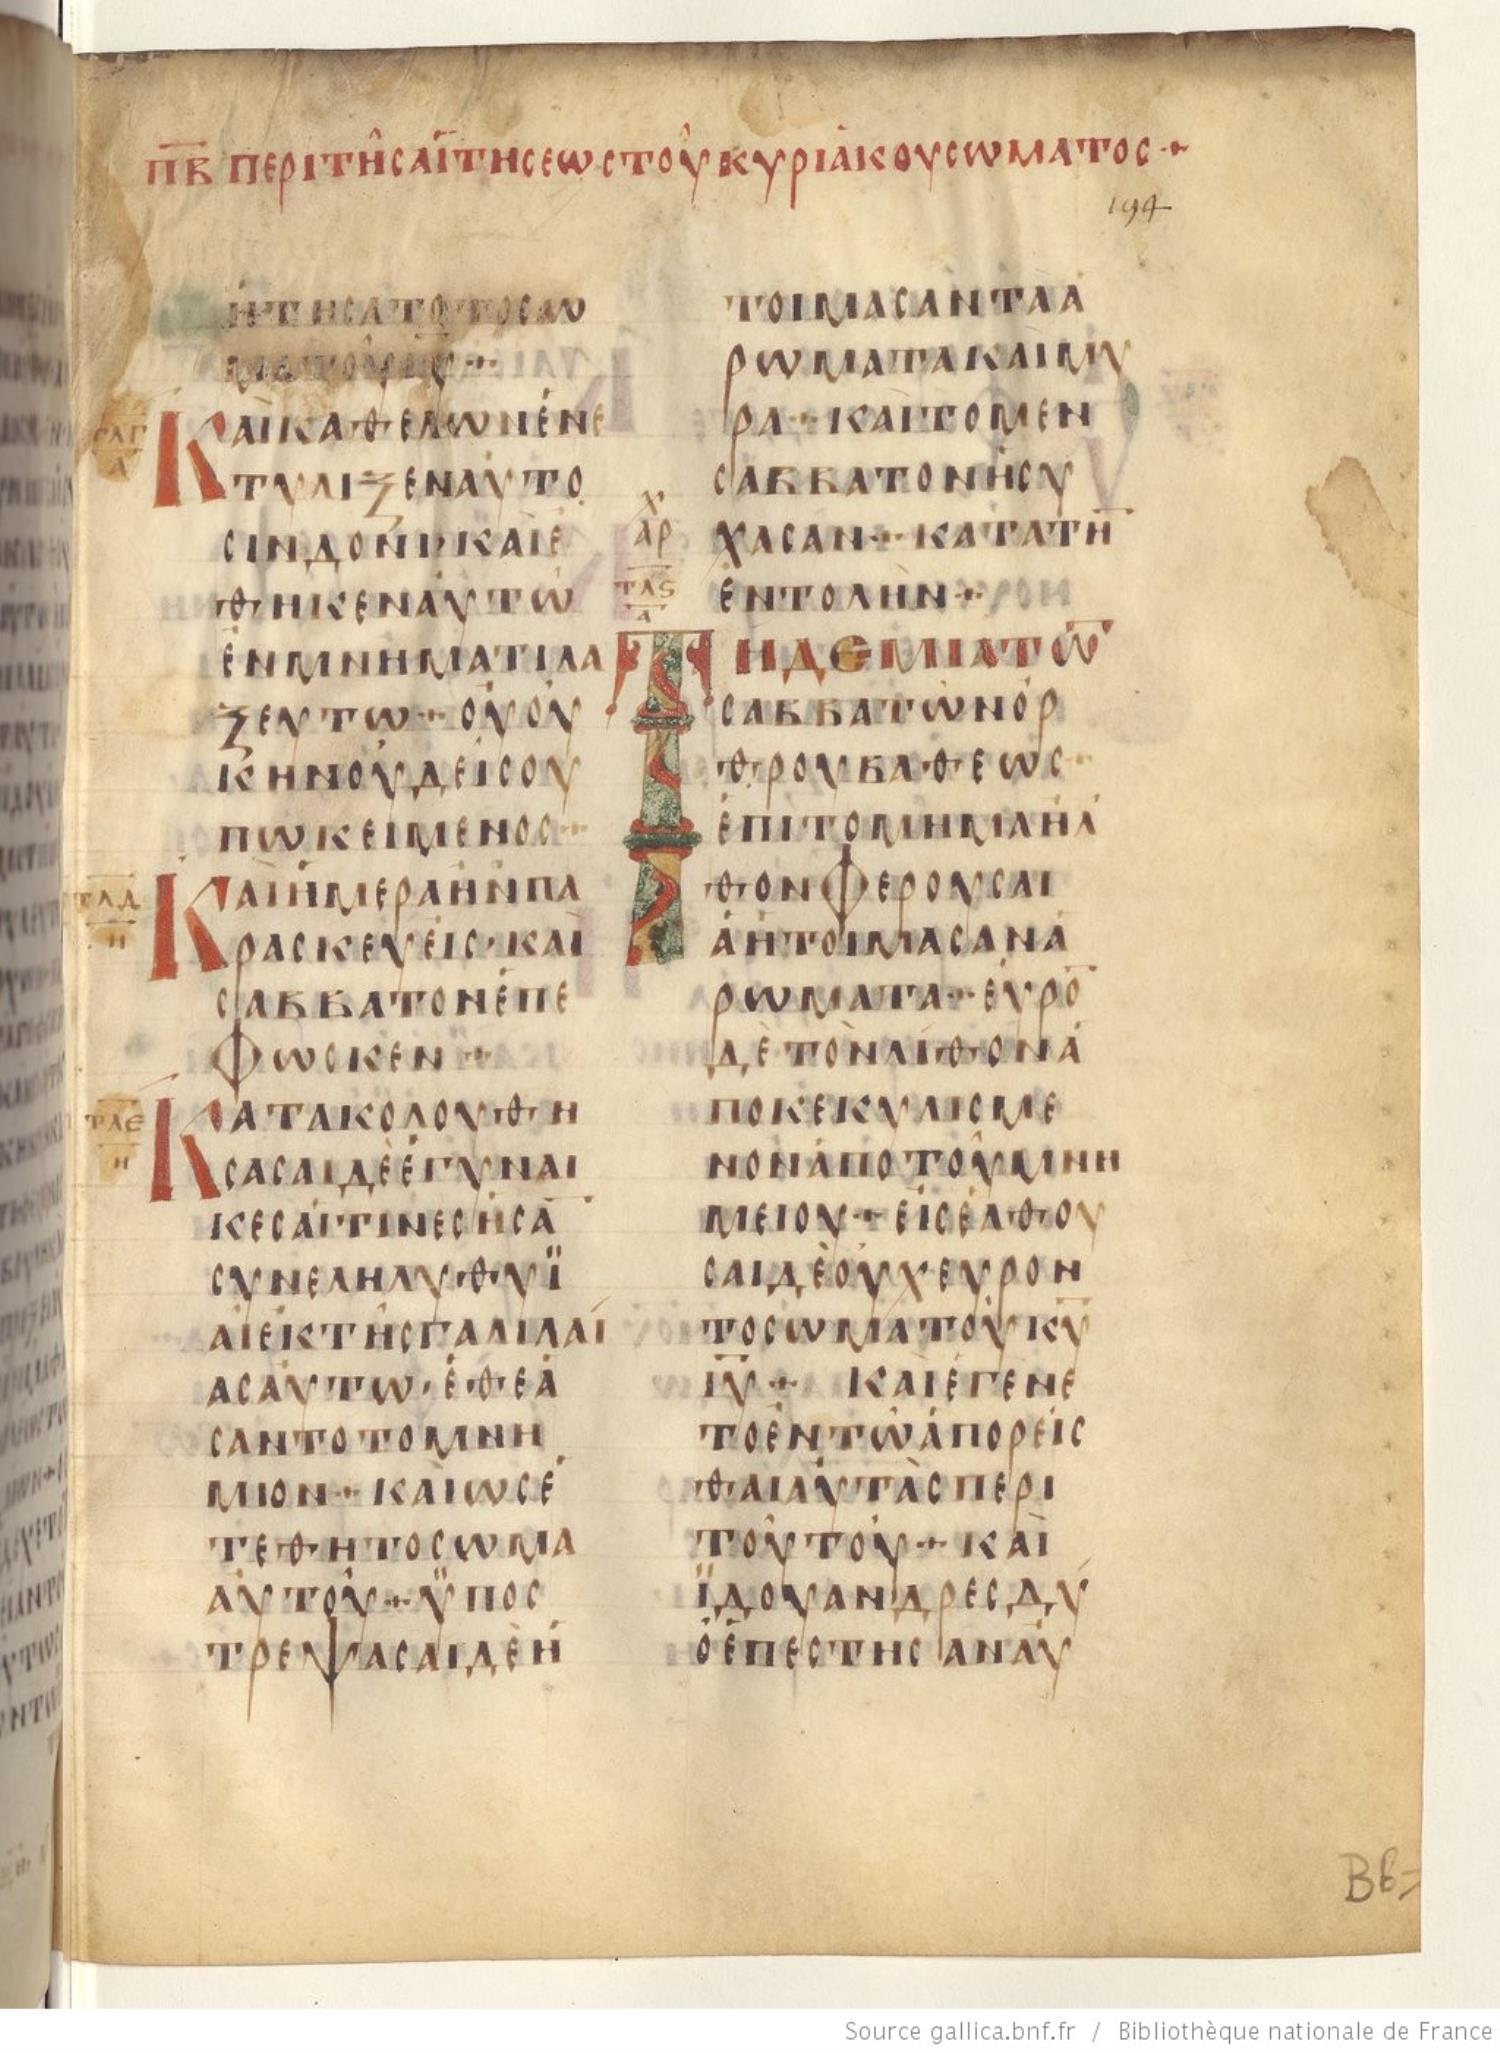 ΠΒ ΠΕΡΙΤΗΣΑΙΤΗΣΕΩΣΤΟΥΚΥΡΙΑΚΟΥΣΩΜΑΤΟΣ
194
ΗΤΗΣΑΤΟΤΟΣΩ
ΜΑΤΟΥΙΥ
ΤΛΓ
Α
ΚΑΙΚΑΘΕΛΩΝΕΝΕ
ΤΥΛΙΞΕΝΑΥΤΟ
ΣΙΝΔΟΝΙ·ΚΑΙΕ
ΘΗΚΕΝΑΥΤΩ
ΕΝΜΝΗΜΑΤΙΛΑ
ΞΕΥΤΩ·ΟΥΟΥ
ΚΗΝΟΥΔΕΙΣΟΥ
ΠΩΚΕΙΜΕΝΟΣ
ΤΛΔ
Η
ΚΑΙΗΜΕΡΑΗΝΠΑ
ΡΑΣΚΕΥΕΙΣ·ΚΑΙ
ΣΑΒΒΑΤΟΝΕΠΕ
ΦΩΣΚΕΝ
ΤΛΕ
Η
ΚΑΤΑΚΟΛΟΥΘΗ
ΣΑΣΑΙΔΕΕΓΥΝΑΙ
ΚΕΣΑΙΤΙΝΕΣΗΣΑ̅
ΣΥΝΕΛΗΛΥΘΥΪ
ΑΙΕΚΤΗΣΓΑΛΙΛΑΙ
ΑΣΑΥΤΩ·ΕΘΕΑ
ΣΑΝΤΟΤΟΜΝΗ
ΜΙΟΝ·ΚΑΙΩΣΕ
ΤΕΘΗΤΟΣΩΜΑ
ΑΥΤΟΥ·ΫΠΟΣ
ΤΡΕΨΑΣΑΙΔΕΗ
ΤΟΙΜΑΣΑΝΤΑΑ
ΡΩΜΑΤΑΚΑΙΜΥ
ΡΑ·ΚΑΙΤΟΜΕΝ
ΣΑΒΒΑΤΟΝΗΣΥ
ΧΑΣΑΝ·ΚΑΤΑΤΗ̅
ΕΝΤΟΛΗΝ
ΑΡΧ
ΤΛϚ
Α
ΤΗΔΕΜΙΑΤΩ̅
ΣΑΒΒΑΤΩΝΟΡ
ΘΡΟΥΒΑΘΕΩΣ
ΕΠΙΤΟΜΗΜΑΗΛ
ΘΟΝΦΕΡΟΥΣΑΙ
ΑΗΤΟΙΜΑΣΑΝΑ
ΡΩΜΑΤΑ·ΕΥΡΟ̅
ΔΕΤΟΝΛΙΘΟΝΑ
ΠΟΚΕΚΥΛΙΣΜΕ
ΝΟΝΑΠΟΤΟΥΜΝΗ
ΜΕΙΟΥ·ΕΙΣΕΛΘΟΥ
ΣΑΙΔΕΟΥΧΕΥΡΟΝ
ΤΟΣΩΜΑΤΟΥΚ̅Υ̅
Ι̅Υ̅· ΚΑΙΕΓΕΝΕ
ΤΟΕΝΤΩΑΠΟΡΕΙΣ
ΘΑΙΑΥΤΑΣΠΕΡΙ
ΤΟΥΤΟΥ·ΚΑΙ
ΪΔΟΥΑΝΔΡΕΣΔΥ
ΟΕΠΕΣΤΗΣΑΝΑΥ
Bb
Source gallica.bnf.fr / Bibliothèque nationale de France